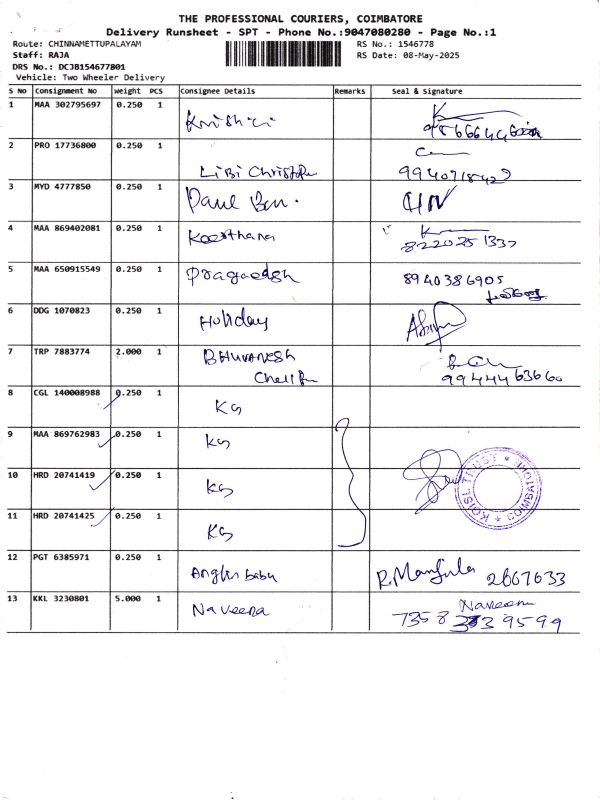 THE PROFESSIONAL COURIERS, COIMBATORE
Delivery Runsheet - SPT - Phone No.:9047080280 - Page No.:1
Route: CHINNAMETTUPALAYAM
RS No.: 1546778
Staff: RAJA
RS Date: 08-May-2025
DRS No.: DCJB154677801
Vehicle: Two Wheeler Delivery
S No Consignment No Weight PCS Consignee Details Remarks Seal & Signature
1 MAA 302795697 0.250 1
2 PRO 17736800 0.250 1 Libi
9940718429
3 MYD 4777850 0.250 1 Paul
4 MAA 869402081 0.250 1 Keerthana
8220251337
5 MAA 650915549 0.250 1 Pragadesh 8940386905
6 DDG 1070823 0.250 1 Holiday
7 TRP 7883774 2.000 1 BHUVANESH
8 CGL 140008988 0.250 1 KG
9 MAA 869762983 0.250 1 KG
10 HRD 20741419 0.250 1 KG
KOISL TRUST * COIMBATORE *
11 HRD 20741425 0.250 1 KG
12 PGT 6385971 0.250 1 R. Manjula 2667633
13 KKL 3230801 5.000 1 Naveena Naveena
9599